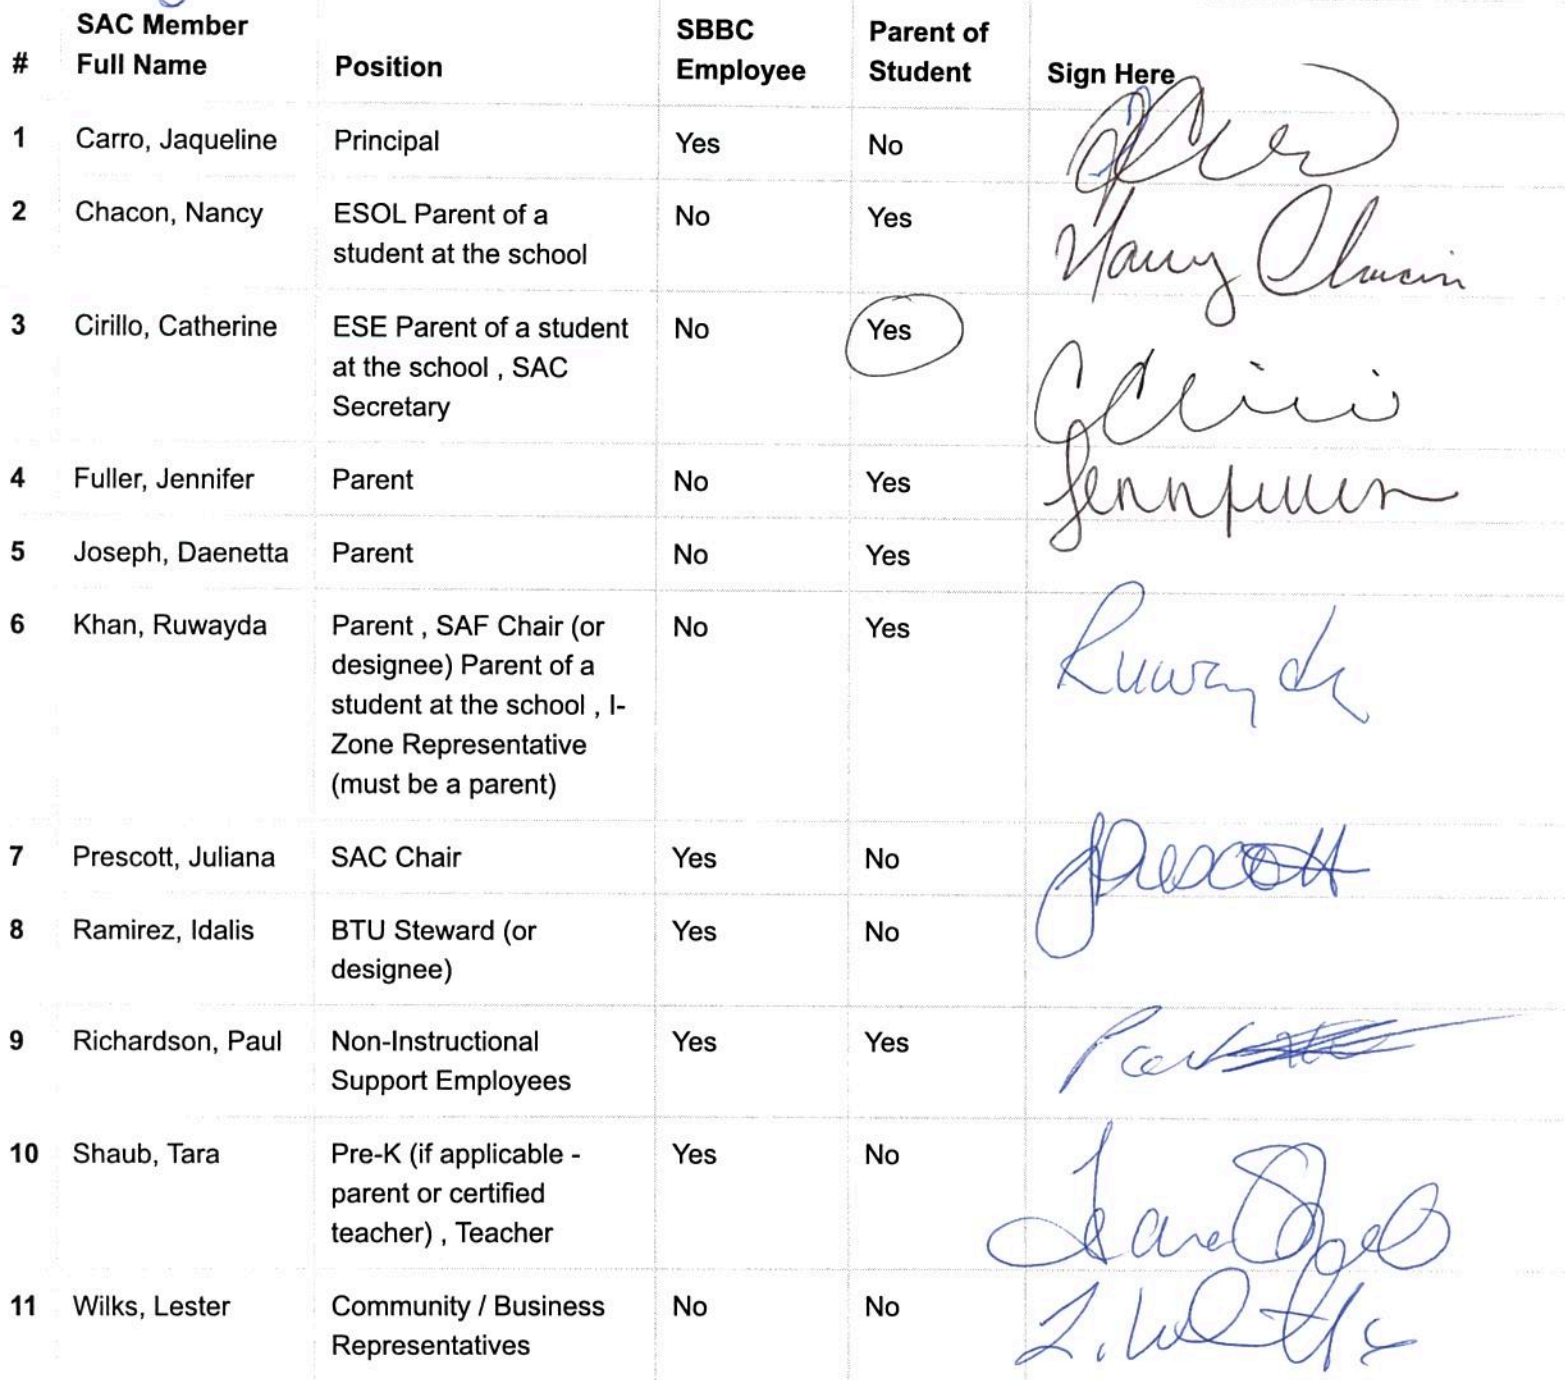 SAC Member
# Full Name Position SBBC Employee Parent of Student Sign Here
1 Carro, Jaqueline Principal Yes No
2 Chacon, Nancy ESOL Parent of a No Yes Nancy Chacon
student at the school
3 Cirillo, Catherine ESE Parent of a student No Yes
at the school , SAC
Secretary
4 Fuller, Jennifer Parent No Yes
5 Joseph, Daenetta Parent No Yes
6 Khan, Ruwayda Parent , SAF Chair (or No Yes Ruwayda
designee) Parent of a
student at the school , I-
Zone Representative
(must be a parent)
7 Prescott, Juliana SAC Chair Yes No JPrescott
8 Ramirez, Idalis BTU Steward (or Yes No
designee)
9 Richardson, Paul Non-Instructional Yes Yes
Support Employees
10 Shaub, Tara Pre-K (if applicable - Yes No
parent or certified
teacher) , Teacher
11 Wilks, Lester Community / Business No No
Representatives